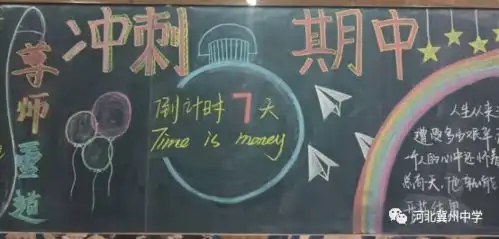 尊师重道
冲刺 期中
倒计时 7 天
Time is money
人生从来
遭受多少艰辛
一个人的心中还怀着
总有一天,他就能
开花结果
河北冀州中学